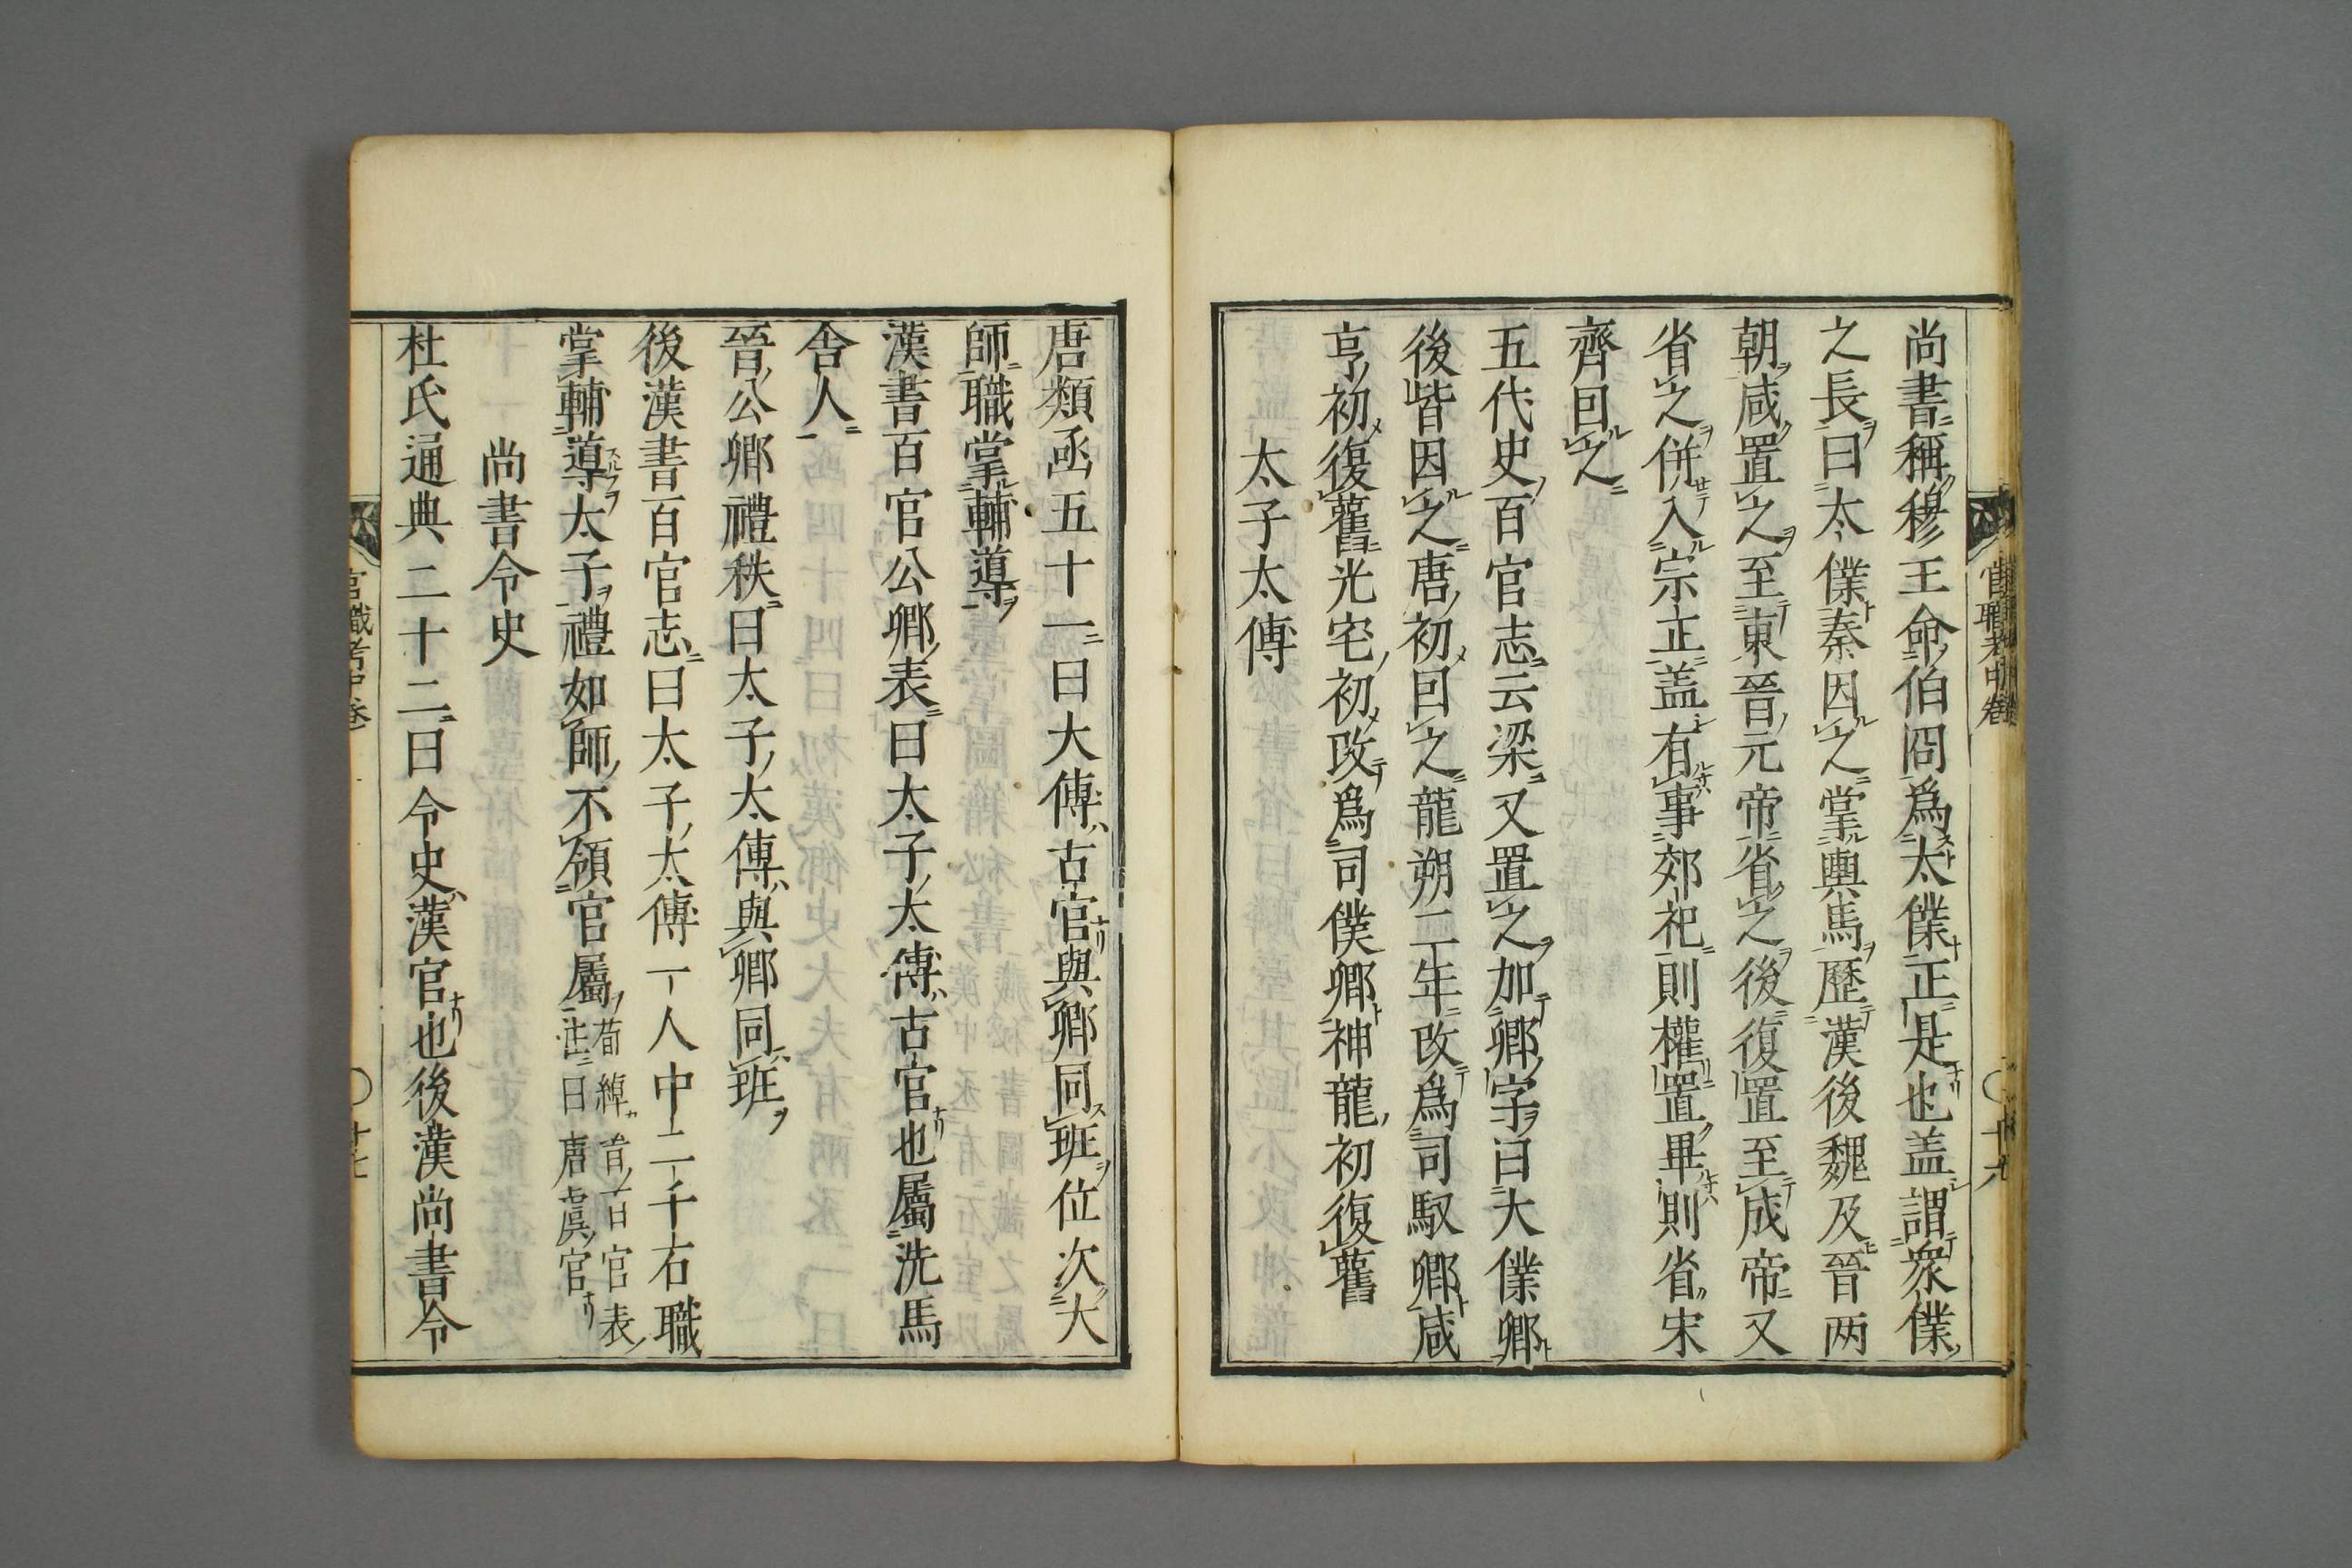 尚書稱穆王命伯冏爲太僕正是也盖謂衆僕
之長曰太僕秦因之掌輿馬歷漢後魏及晉两
朝咸置之至東晉元帝省之後復置至成帝又
省之併入宗正盖有事郊祀則權置畢則省宋
齊囙之
五代史百官志云梁又置之加卿字曰大僕卿
後皆因之唐初囙之龍朔二年改爲司馭卿咸
亨初復舊光宅初改爲司僕卿神龍初復舊
太子太傅
唐類函五十一曰大傅古官與卿同班位次大
師職掌輔導
漢書百官公卿表曰太子太傅古官也屬洗馬
舎人
晉公卿禮秩曰太子太傅與卿同班
後漢書百官志曰太子太傅一人中二千石職
掌輔導太子禮如師不領官屬荀綽百官表
注曰唐虞官
尚書令史
杜氏通典二十二曰令史漢官也後漢尚書令
官職考中卷
十七